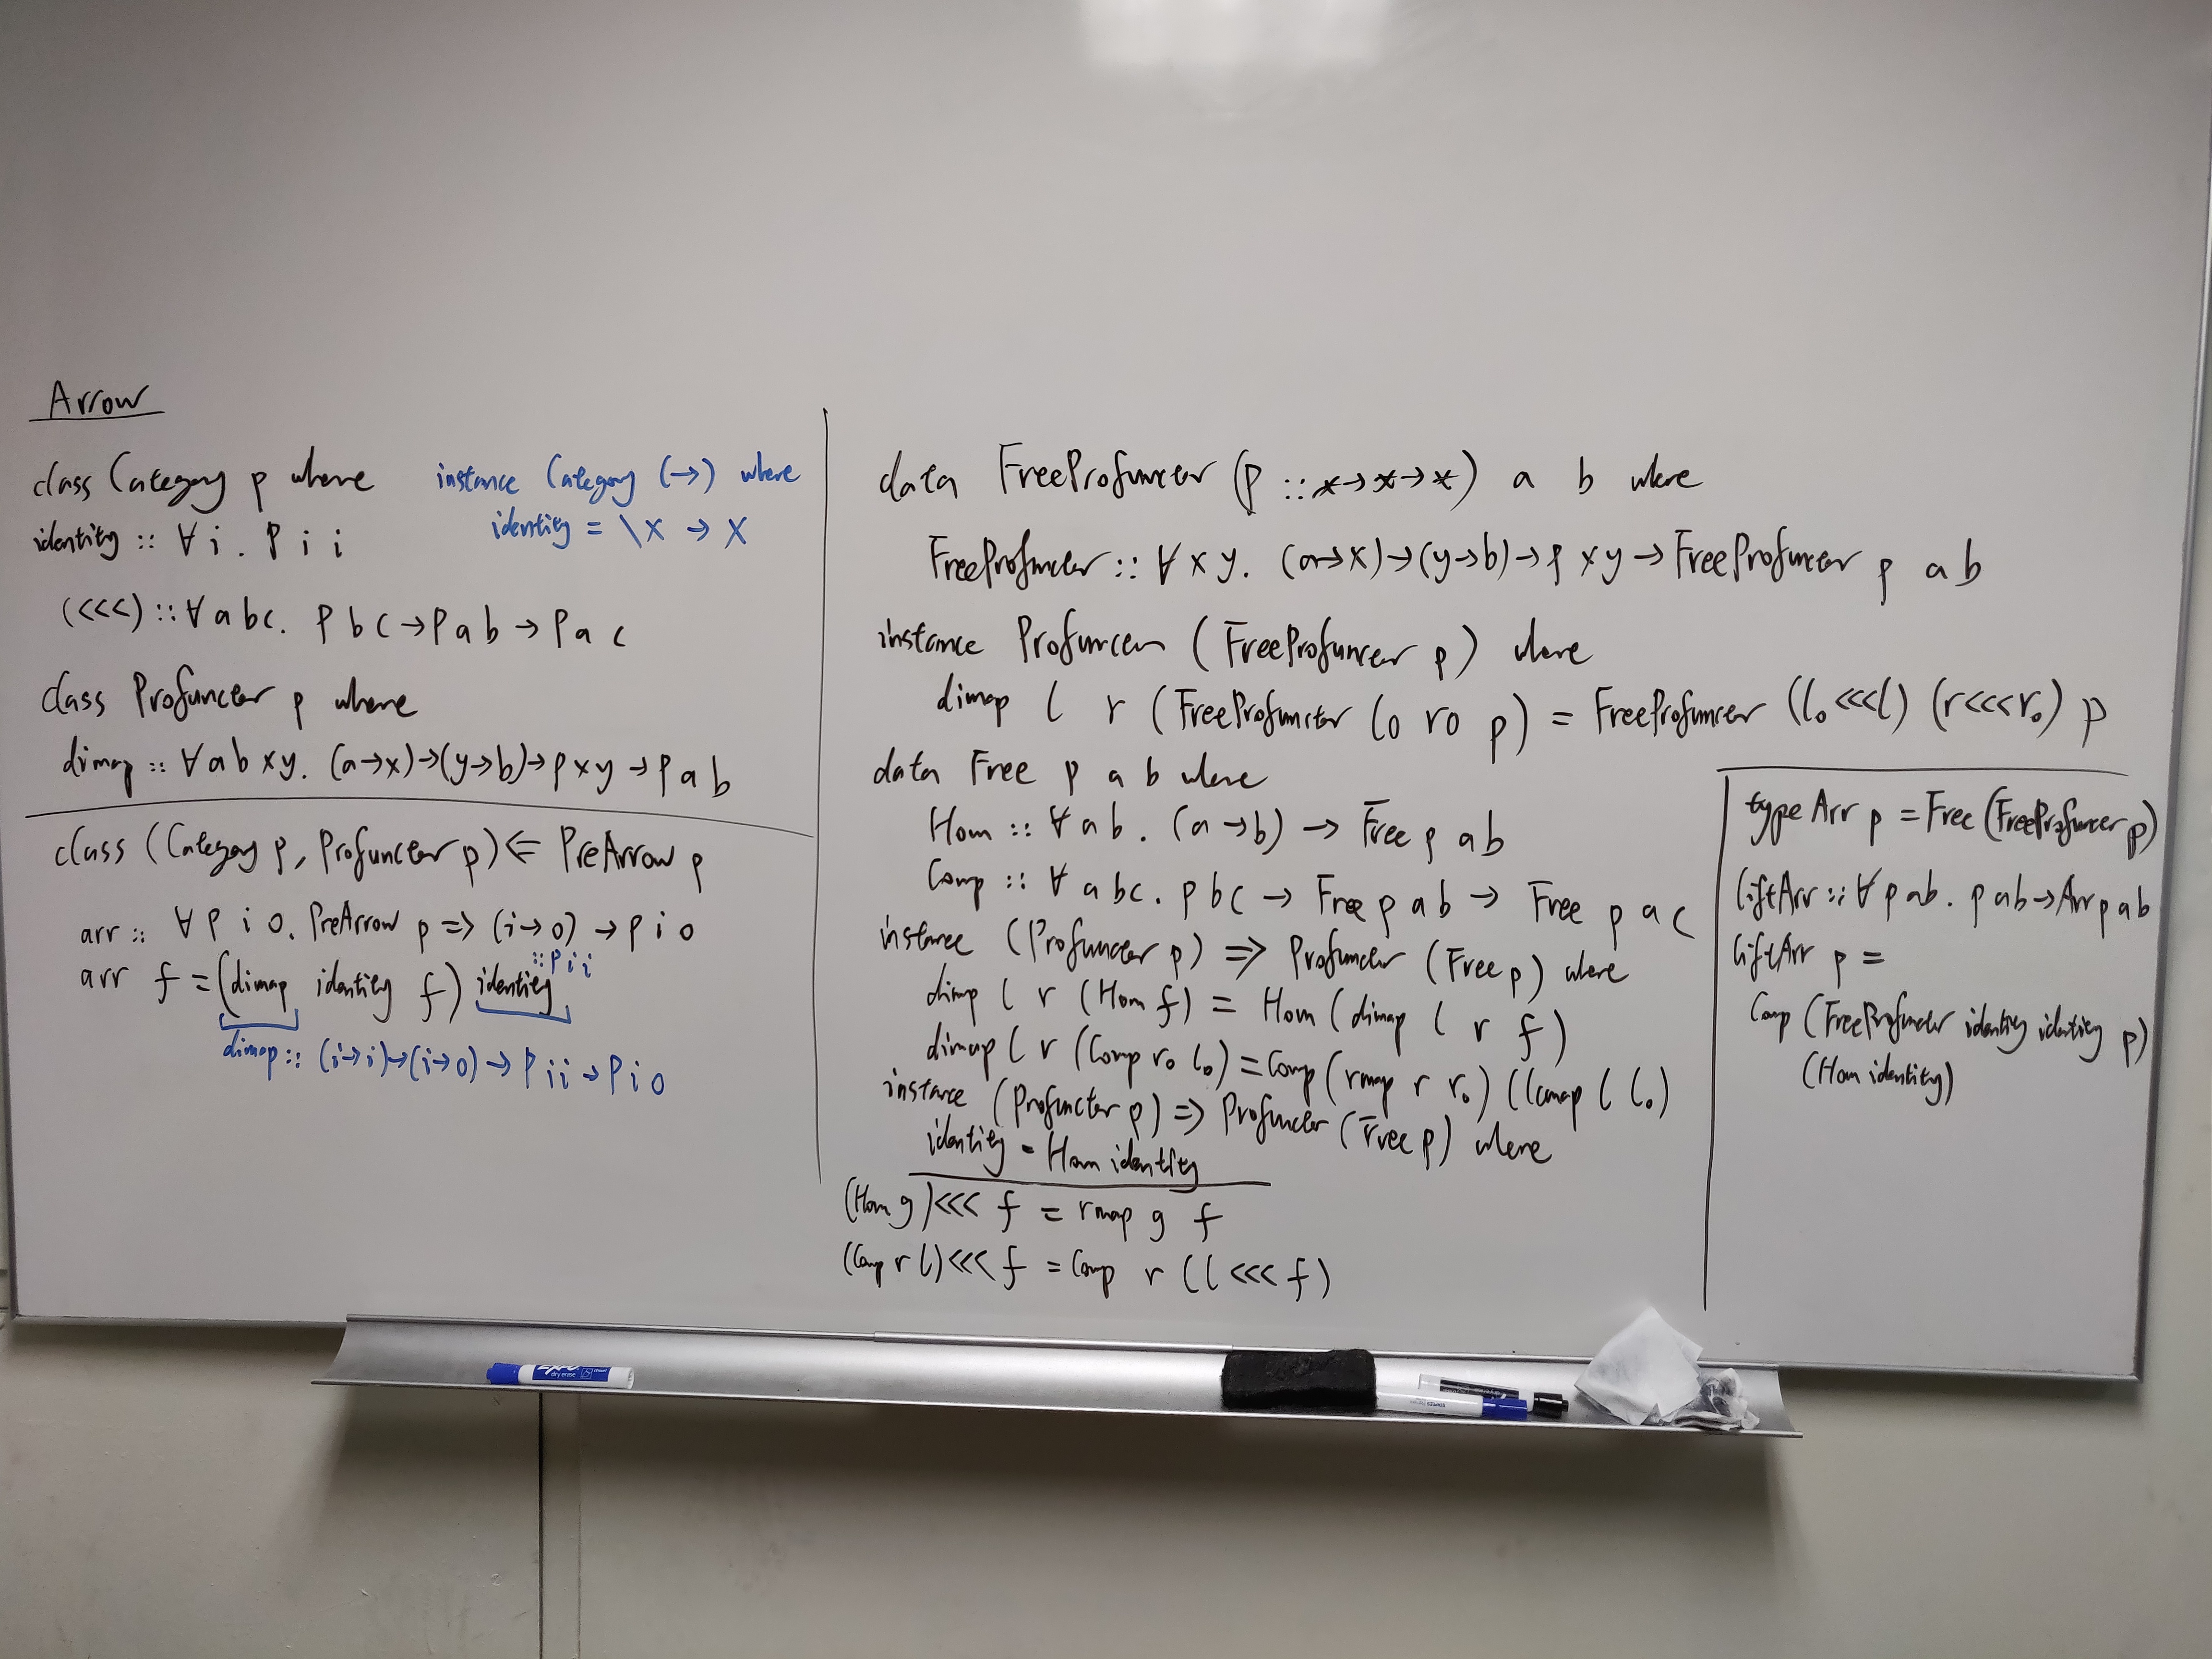 Arrow
class Category p where
identity :: ∀ i . p i i
(<<<) :: ∀ a b c . p b c → p a b → p a c
class Profunctor p where
dimap :: ∀ a b x y. (a→x)→(y→b)→ p x y → p a b
class (Category p, Profunctor p) ⇐ PreArrow p
arr :: ∀ p i o. PreArrow p => (i→o) → p i o
:: p i i
arr f = (dimap identity f) identity
dimap :: (i→i)→(i→o) → p i i → p i o
instance Category (→) where
identity = \x → x
data FreeProfunctor (p :: *→*→*) a b where
FreeProfunctor :: ∀ x y. (a→x)→(y→b)→ p x y → FreeProfunctor p a b
instance Profunctor (FreeProfunctor p) where
dimap l r (FreeProfunctor lo ro p) = FreeProfunctor (l₀ <<< l) (r <<< r₀) p
data Free p a b where
Hom :: ∀ a b . (a → b) → Free p a b
Comp :: ∀ a b c. p b c → Free p a b → Free p a c
instance (Profunctor p) => Profunctor (Free p) where
dimap l r (Hom f) = Hom (dimap l r f)
dimap l r (Comp r₀ l₀) = Comp (rmap r r₀) (lcmap l l₀)
instance (Profunctor p) => Profunctor (Free p) where
identity = Hom identity
(Hom g) <<< f = rmap g f
(Comp r l) <<< f = Comp r (l <<< f)
type Arr p = Free (FreeProfunctor p)
liftArr :: ∀ p a b. p a b → Arr p a b
liftArr p =
Comp (FreeProfunctor identity identity p)
(Hom identity)
EXPO
dry erase